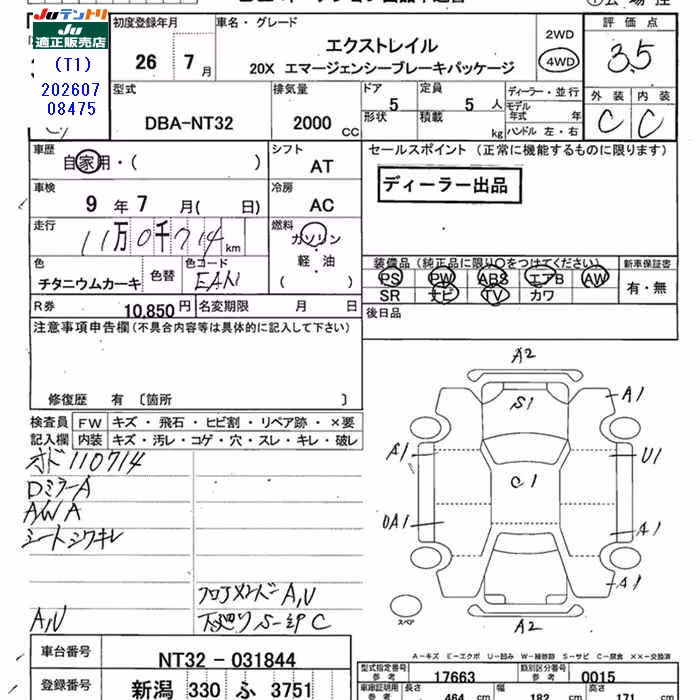 JU テントリ
JU 適正販売店
(T1)
202607
08475
初度登録年月
26 7月
車名・グレード
エクストレイル
20X エマージェンシーブレーキパッケージ
2WD
4WD
評価点
3.5
外装 内装
C C
型式
DBA-NT32
排気量
2000 CC
ドア 5
形状
定員 5 人
積載 kg
ディーラー・並行
モデル年式 年
ハンドル 左・右
車歴
自家用・( )
シフト
AT
車検
9年7月( 日)
冷房
AC
走行
11万0千714km
燃料
ガソリン
軽・油
( )
色
チタニウムカーキ
色替
色コード
EAN
R券
10,850円
名変期限 月 日
セールスポイント(正常に機能するものに限ります)
ディーラー出品
装備品(純正品に限り○をつけてください)
PS PW ABS エアB AW
SR ナビ TV カワ
新車保証書
有・無
後日品
注意事項申告欄(不具合内容等は具体的に記入して下さい)
修復歴 有〔箇所 〕
検査員記入欄
FW キズ・飛石・ヒビ割・リペア跡・×要
内装 キズ・汚レ・コゲ・穴・スレ・キレ・破レ
オド110714
DミラーA
AWA
シートシワキレ
A,U
フロアメンバーA,U
下廻りS-ヨリC
A2
S1
A1
A1
U1
C1
UA1
A1
A1
A2
スペア
A-キズ E-エクボ U-凹ミ W-補修跡 S-サビ C-腐食 ××-交換済
車台番号
NT32-031844
登録番号
新潟 330 ふ 3751
型式指定番号 参考
17663
類別区分番号 参考
0015
車庫証明用 参考
長さ 464 cm
幅 182 cm
高さ 171 cm